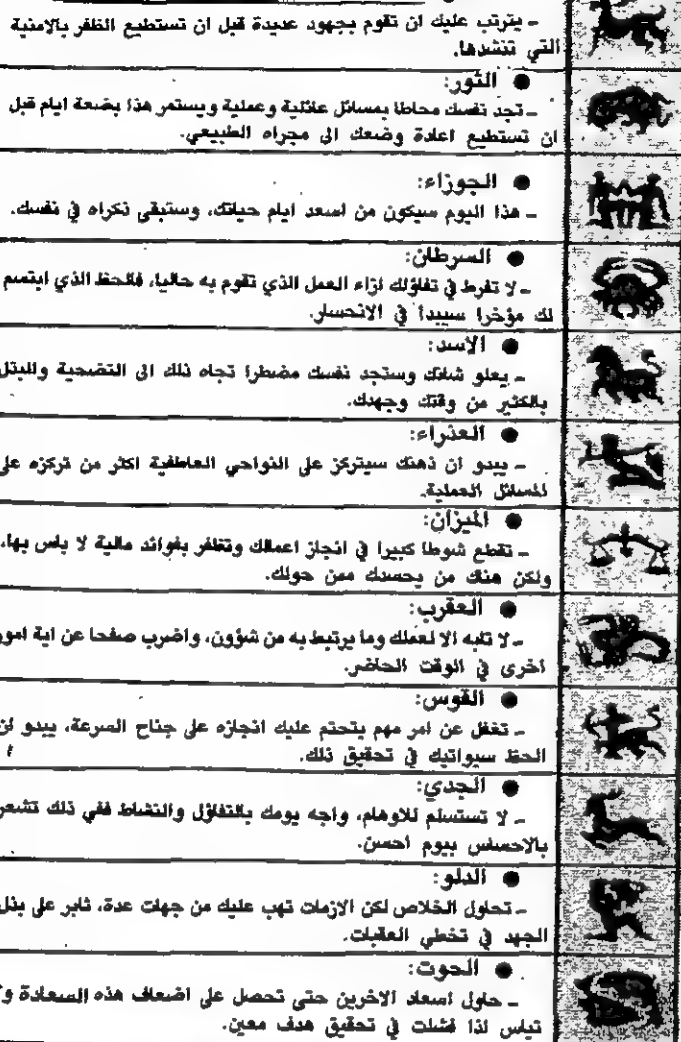 - يترتب عليك ان تقوم بجهود عديدة قبل ان تستطيع الظفر بالامنية
التي تنشدها.
● الثور:
- تجد نفسك محاطا بمسائل عائلية وعملية ويستمر هذا بضعة ايام قبل
ان تستطيع اعادة وضعك الى مجراه الطبيعي.
● الجوزاء:
- هذا اليوم سيكون من اسعد ايام حياتك، وستبقى ذكراه في نفسك.
● السرطان:
- لا تفرط في تفاؤلك ازاء العمل الذي تقوم به حاليا، فالحظ الذي ابتسم
لك مؤخرا سيبدأ في الانحسار.
● الاسد:
- يعلو شانك وستجد نفسك مضطرا تجاه ذلك الى التضحية
بالكثير من وقتك وجهدك.
● العذراء:
- يبدو ان ذهنك سيتركز على النواحي العاطفية اكثر من تركزه على
المسائل العملية.
● الميزان:
- تقطع شوطا كبيرا في انجاز اعمالك وتظفر بفوائد مالية لا باس بها،
ولكن هناك من يحسدك ممن حولك.
● العقرب:
- لا تابه الا لعملك وما يرتبط به من شؤون، واضرب صفحا عن اية امور
اخرى في الوقت الحاضر.
● القوس:
- تغفل عن امر مهم يتحتم عليك انجازه على جناح السرعة، يبدو ان
الحظ سيواتيك في تحقيق ذلك.
● الجدي:
- لا تستسلم للاوهام، واجه يومك بالتفاؤل والنشاط ففي ذلك تشعر
بالاحساس بيوم احسن.
● الدلو:
- تحاول الخلاص لكن الازمات تهب عليك من جهات عدة، ثابر على بذل
الجهد في تخطي العقبات.
● الحوت:
- حاول اسعاد الاخرين حتى تحصل على اضعاف هذه السعادة
تياس اذا فشلت في تحقيق هدف معين.